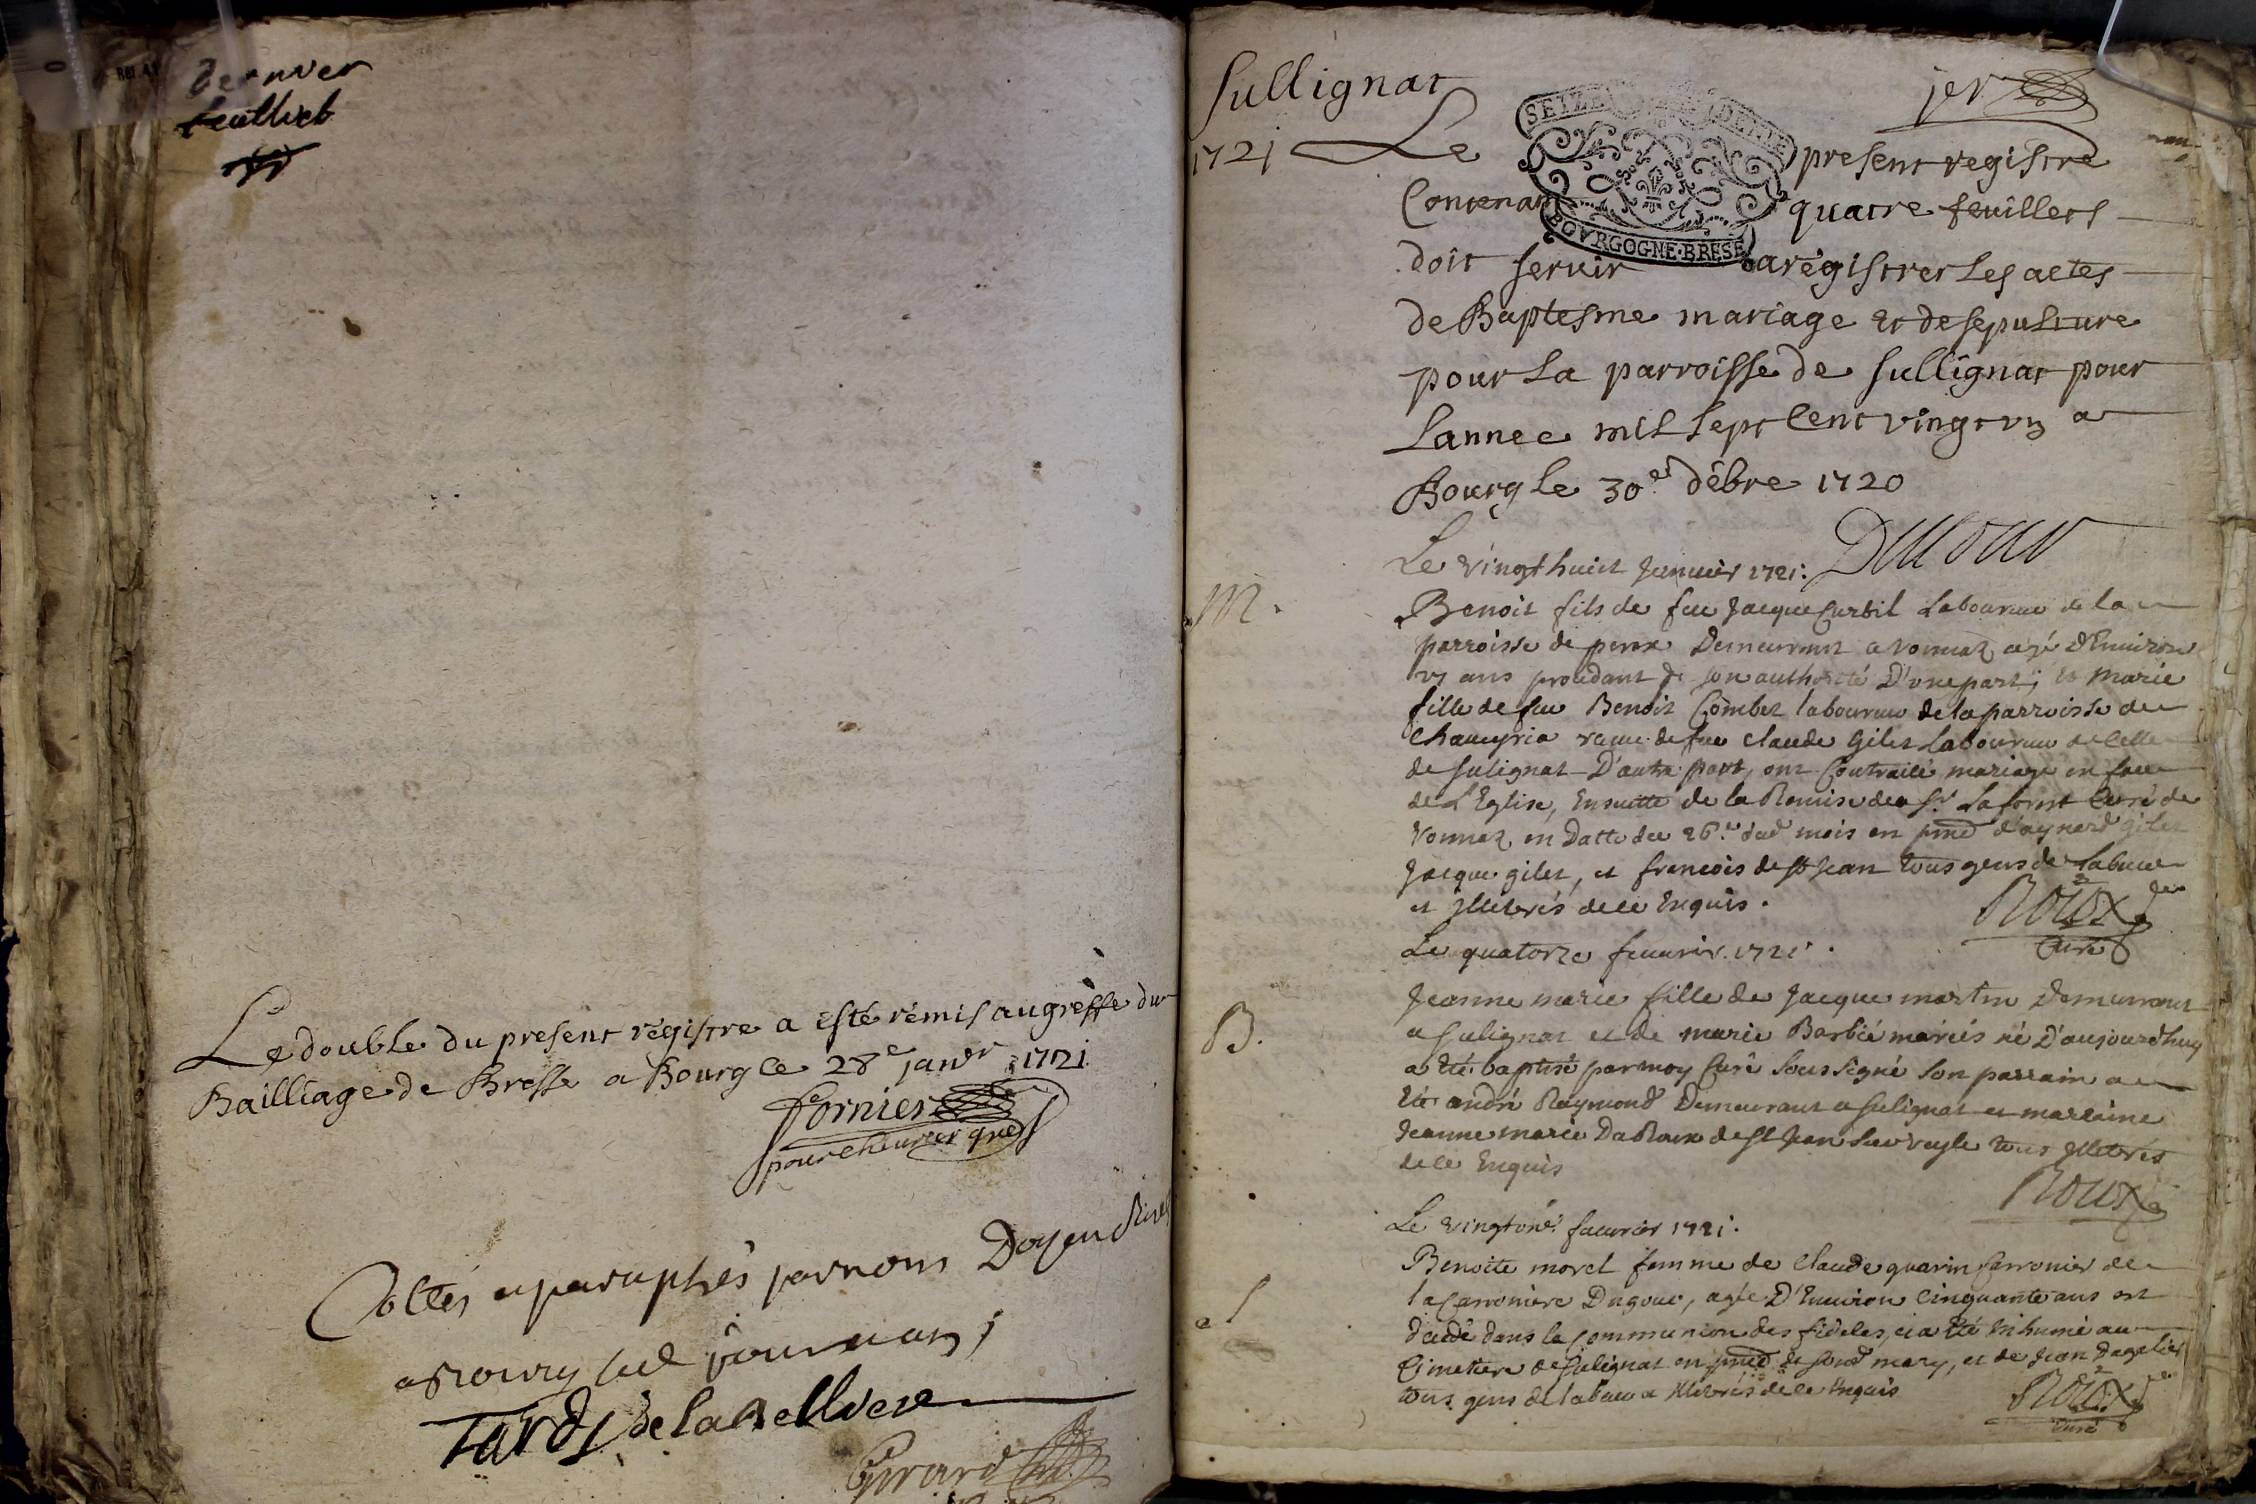 dernier
feuillet
Le double du present régistre a esté rémis au greffe du
Bailliage de Bresse a Bourg ce 28e janvr 1721
fornier
pour cheurier
Cottés et paraphés par nous Doyen
a Bourg led jour
Tardy de la Bellviere
Girard
Sullignat
1er
1721
Le present registre
SEIZE DENIE
BOVRGOGNE·BRESE
Contenant quatre feuillets
doit seruir a régistrer Les actes
de Baptesme mariage et de sepulture
pour La parroisse de sullignat pour
Lannee mil sept Cent vingt vn a
Bourg Le 30e débre 1720
Le vingt huict Januier 1721.
M.
Benoit fils de feu Jacque Curtil Laboureur de la
parroisse de perex Demeurant a vonnaz agé d'Enuiron
ans procedant de son authorité D'une part; et Marie
fille de feu Benoit Combet laboureur de la parroisse de
Chaueyria veuue de feu Claude Gilet Laboureur de Celle
de sulignat D'autre part, ont Contracté mariage en face
de L'Eglise, Ensuitte de la Remise de Sr Laforest Curé de
Vonnaz en Datte du 26.e dud mois en pnce d'aynard Gilet
Jacque gilet, et francois de st Jean tous gens de Labeur
et Illiterés de ce Enquis.
Roux
Curé
Le quatorze feuurier 1721.
B.
Jeanne marie fille de Jacque martin Demeurant
a sulignat et de marie Barbié mariés né D'aujourd'huy
a Eté baptisé par moy Curé soussigné son parrain a
Eté andré Raymond Demeurant a sulignat et marraine
Jeanne marie DaRoux de st Jean sur veyle tous Illiterés
de ce Enquis
Roux
Le vingt feuurier 1721.
S
Benoite morel femme de Claude quarin Carronier de
la Carroniere Dugour, agée D'Enuiron Cinquante ans est
decedé dans la Communion des fideles, et a Eté Inhumé au
Cimetiere de sulignat en pnce de mary, et de Jean Dagalier
tous gens de labeur et Illiterés de ce Enquis
Roux
curé